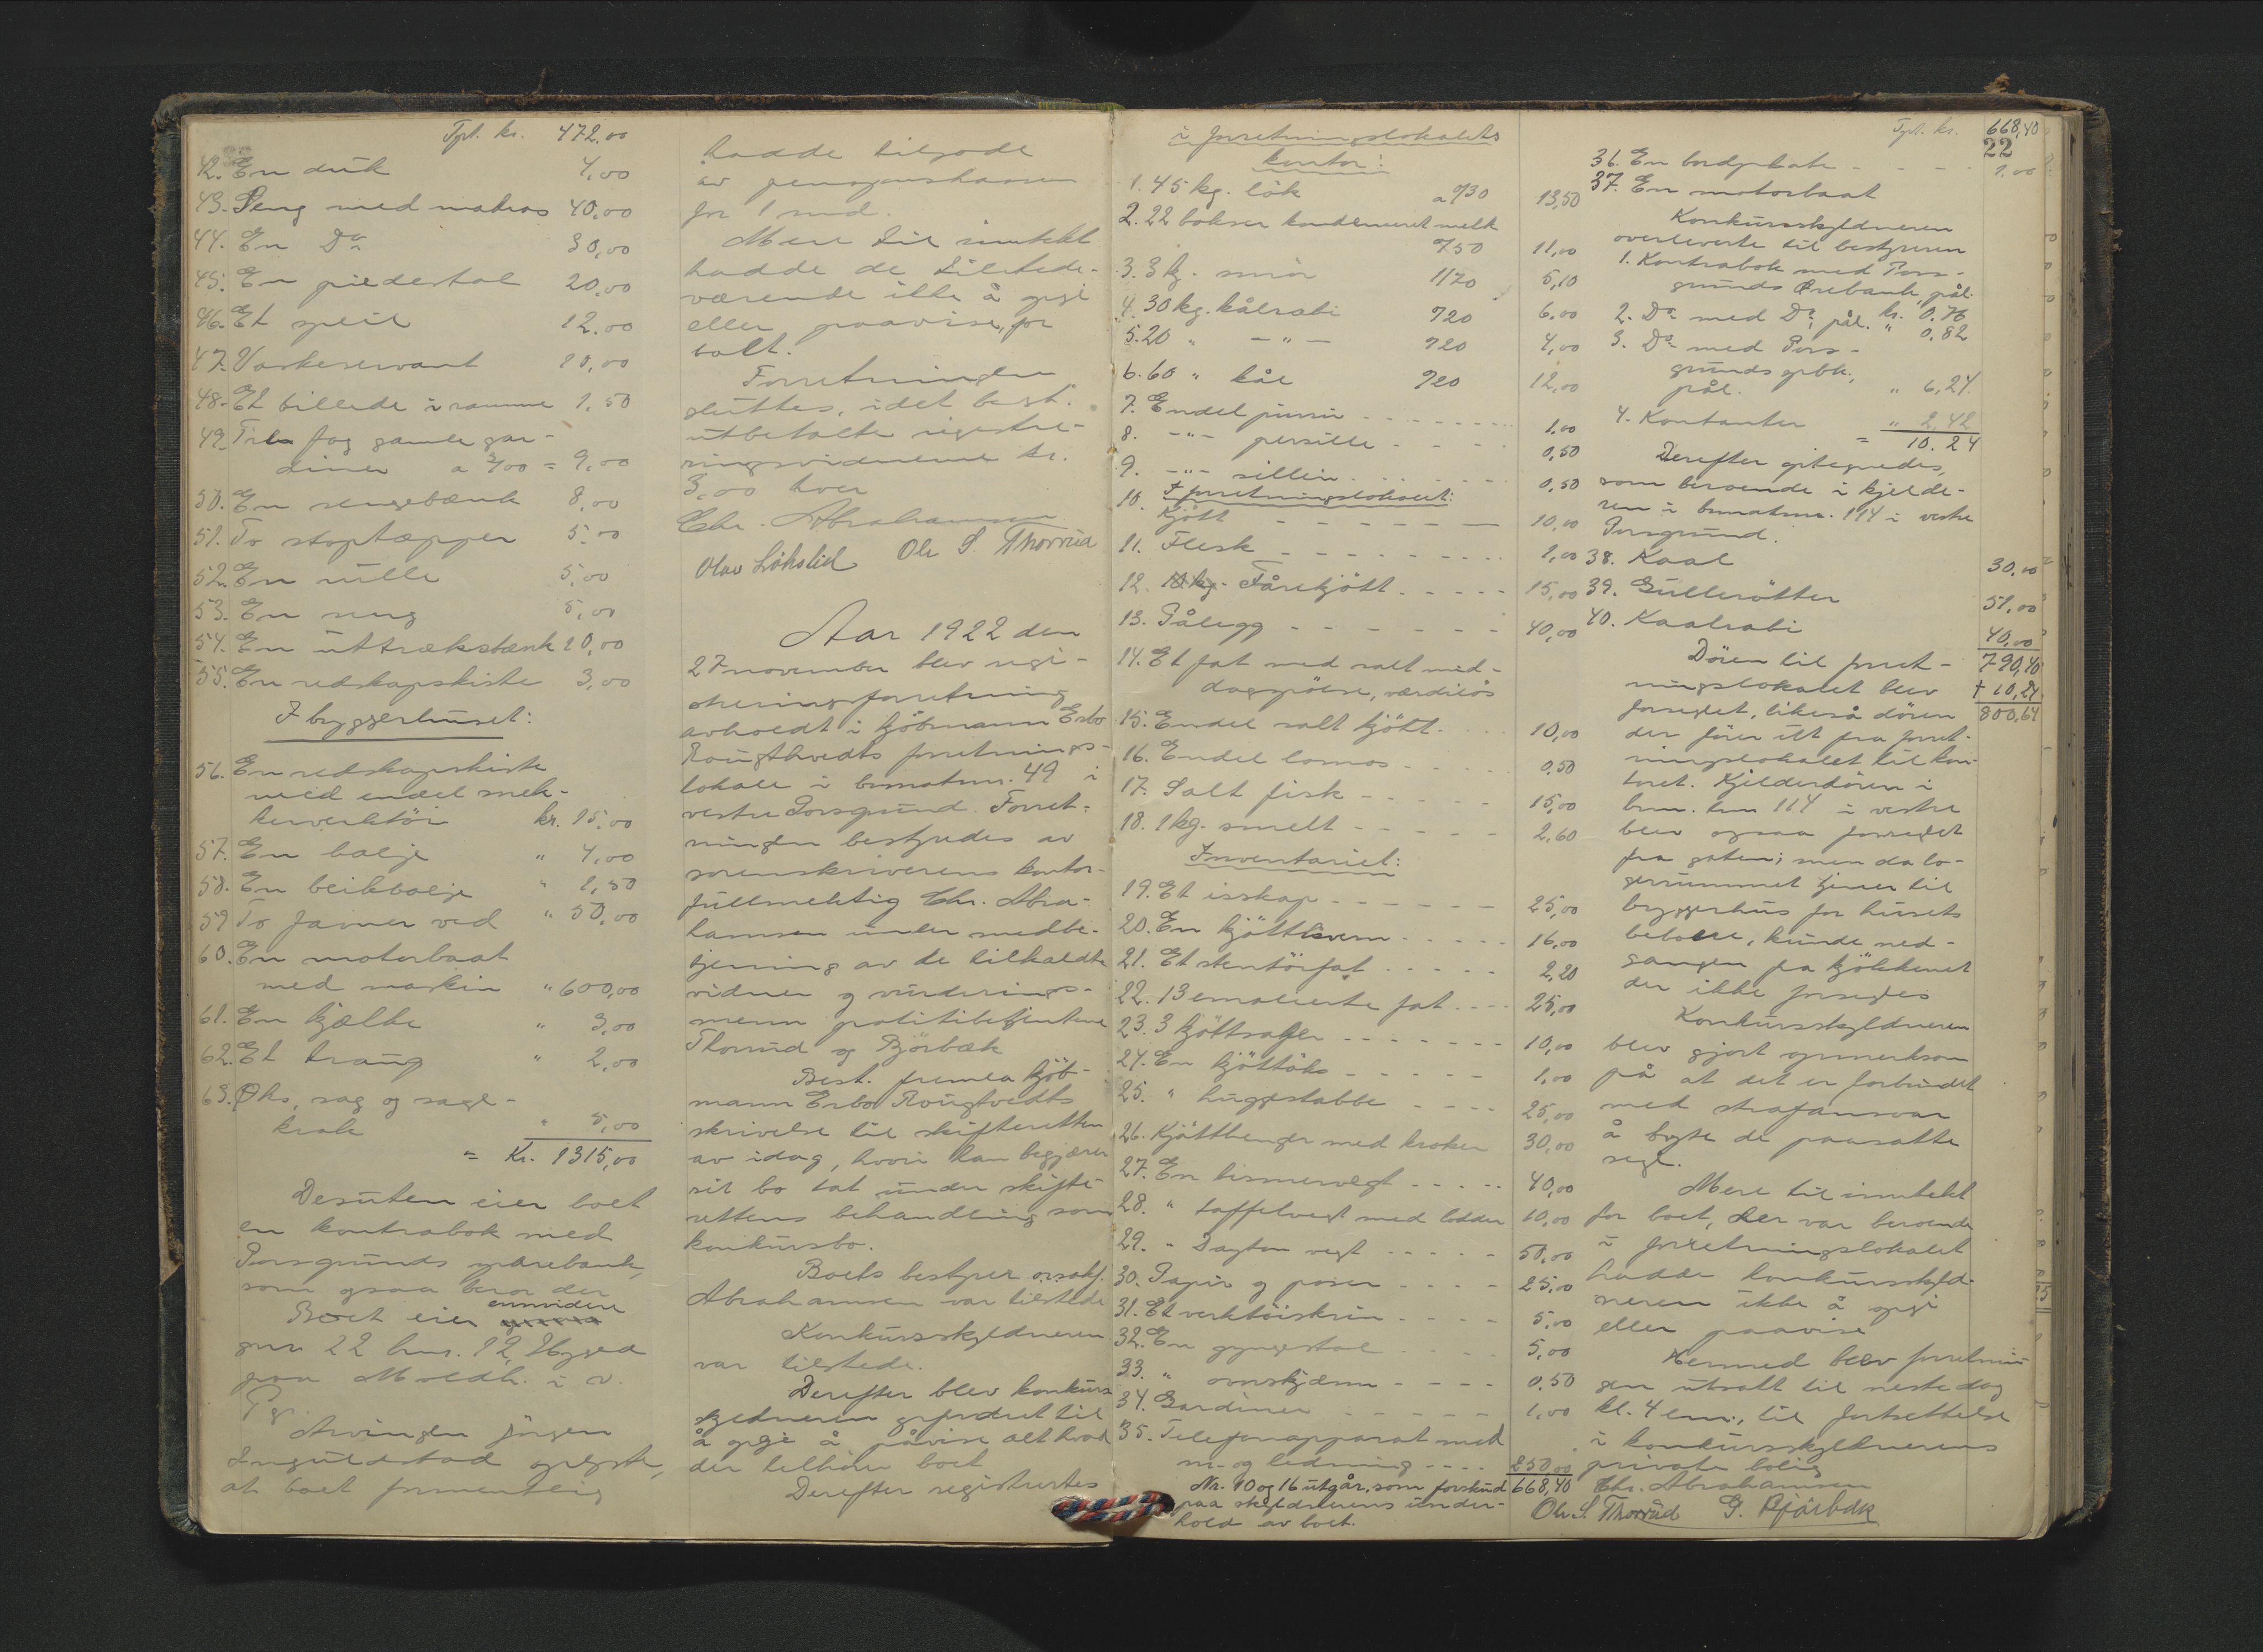 Tpt. kr. 472,00
42. En duk 4,00
43. Seng med madras 40,00
44. En Do 30,00
45. En piedestal 20,00
46. Et speil 12,00
47. Vaskeservant 10,00
48. Et billede i ramme 1,50
49. Tre fag gamle gar-
diner a 3/00 = 9,00
50. En sengebænk 8,00
51. To stoptæpper 5,00
52. En rulle 5,00
53. En seng 5,00
54. En uttræksbænk 20,00
55. En redskapskiste 3,00
I bryggerhuset:
56. En redskapskiste
med endel snek-
kerverktöi kr. 15,00
57. En balje " 4,00
58. En bleikbalje " 1,50
59 To favner ved " 50,00
60. En motorbaat
med maskin " 600,00
61. En kjælke " 3,00
62. Et traug " 2,00
63. Öks, sag og sage-
krak " 5,00
= Kr. 1315,00
Desuten eier boet
en kontrabok med
Porsgrunds sparebank,
som ogsaa beror der
Boet eier emnvidere
gnr. 22 bnr. 12,
paa i v.
Pgr.
Arvingen Jörgen
Inguldstad oplyste,
at boet formentlig
hadde tilgode
av pensjonskassen
for 1 mnd.
Mere til inntekt
hadde de tilstede-
værende ikke å opgi
eller paavise, for
boet.
Forretningen
sluttes, idet best.
utbetalte registre-
ringsvidnerne kr.
3,00 hver
Chr. Abrahamsen
Olav Lökslid Ole S. Thorrud
Aar 1922 den
27 november blev regi-
streringsforretning
avholdt i kjöbmann Erbo
Rougthvedts forretnings-
lokale i bymatnr. 49 i
vestre Porsgrund. Forret-
ningen bestyredes av
sorenskriverens kontor-
fullmektig Chr. Abra-
hamsen under medbe-
tjening av de tilkaldte
vidner og vurderings-
menn politibetjentene
Thorrud og Björbæk
Best. fremla kjöb-
mann Erbo Rougtvedts
skrivelse til skifteretten
av idag, hvori han begjærer
sit bo tat under skifte-
rettens behandling som
konkursbo.
Boets bestyrer o.r.sakf.
Abrahamsen var tilstede
Konkursskyldneren
var tilstede.
Derefter blev konkurs
skyldneren opfordret til
å opgi å påvise alt hvad
der tilhörer boet
Derefter registrertes
i forretningslokalets
kontor:
1. 45 kg. lök a 0/30 13,50
2. 22 bokser kondenseret melk
0/50 11,00
3. 3 kg. smör 1/70 5,10
4. 30 kg. kålrabi 0/20 6,00
5. 20 " - " - 0/20 4,00
6. 60 " kål 0/20 12,00
7. Endel purre 1,00
8. - " - persille 0,50
9. - " - selleri 0,50
I forretningslokalet:
10. Kjött 10,00
11. Flesk 1,00
12. Fårekjött 15,00
13. Pålegg 40,00
14. Et fat med salt mid-
dagspölse, værdilös
15. Endel salt kjött 10,00
16. Endel lomos 0.50
17. Salt fisk 15,00
18. 1 kg. smelt 2,60
Inventariet:
19. Et isskap 25,00
20. En kjöttkvern 16,00
21. Et stentöifat 2,20
22. 13 emaljerte fat 25,00
23. 3 kjöttsager 10,00
24. En kjöttöks 1,00
25. " huggestabbe 25,00
26. Kjötthenger med kroker 30,00
27. En bismervegt 40,00
28. " taffelvegt med lodder 10,00
29. " Dayton vegt 50,00
30. Papir og poser 25,00
31. Et verktöiskrin 5,00
32. En gyngestol 5,00
33. " ovnskjærm 0.50
34. Gardiner 1,00
35. Telefonapparat med
nr. og ledning 250,00
668,40
Nr. 10 og 16 utgår, som forskud
paa skyldnerens under-
hold av boet.
Tpt. kr. 668,40
22
36. En bordplate 1,00
37. En motorbaat
Konkursskyldneren
overleverte til bestyreren
1. Kontrabok med Pors-
grunds Örebank, pål.
kr. 0.76
2. Do med Do, pål. " 0.82
3. Do med Pors-
grunds spbk.,
pål. " 6,24
4. Kontanter " 2,42
= 10.24
Derefter optegnedes,
som beroende i kjelde-
ren i bymatrnr. 114 i vestre
Porsgrund.
38. Kaal 30,00
39. Gullerötter 51,00
40. Kaalrabi 40,00
790,40
+ 10,24
800,64
Dören til forret-
ningslokalet blev
forseglet, likeså dören
der förer ut fra forret-
ningslokalet til kon-
toret. Kjelderdören i
bnr. 114 i vestre
blev ogsaa forseglet
fra gaten; men da la-
gerrummet tjener til
bryggerhus for husets
beboere, kunde ned-
gangen fra kjökkenet
der ikke forsegles
Konkursskyldneren
blev gjort opmerksom
på at det er forbundet
med strafansvar
å bryte de paasatte
segl.
Mere til inntekt
for boet, der var beroende
i forretningslokalet
hadde konkursskyld-
neren ikke å opgi
eller paavise
Hermed blev forretnin-
gen utsatt til neste dag
kl. 4 em., til fortsettelse
i konkursskyldnerens
private bolig
Chr. Abrahamsen
Ole S. Thorrud G. Björbæk